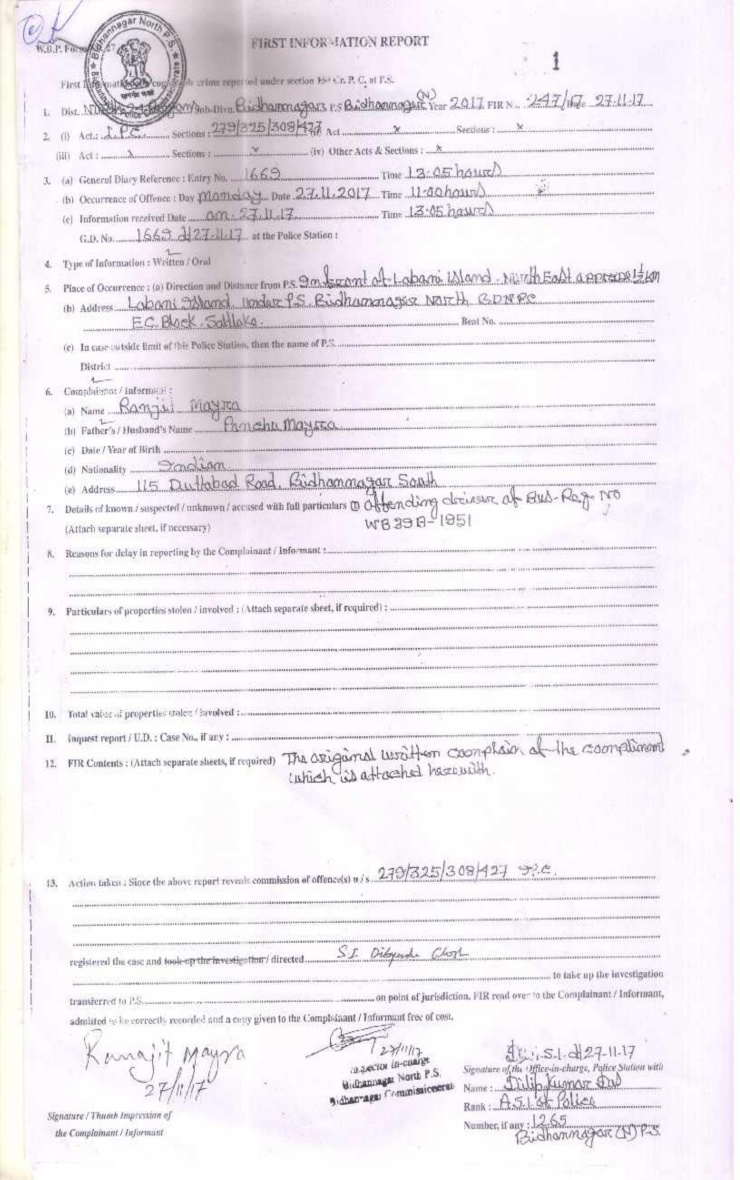 W.B.P. Form
Bidhannagar North P.S.
FIRST INFORMATION REPORT
1
First Information of cognizable crime reported under section 154 Cr. P. C. at P.S.
1. Dist. Sub-Divn. Bidhannagar P.S Bidhannagar (N) Year 2017 FIR No. 247/17 Date 27.11.17
2. (i) Act.: I.P.C. Sections : 279/325/308/427 (ii) Act x Sections : x
(iii) Act : x Sections : x (iv) Other Acts & Sections : x
3. (a) General Diary Reference : Entry No. 1669 Time 13:05 hours
(b) Occurrence of Offence : Day Monday Date 27.11.2017 Time 11:00 hours
(c) Information received Date on 27.11.17 Time 13:05 hours
G.D. No. 1669 dt 27.11.17 at the Police Station :
4. Type of Information : Written / Oral
5. Place of Occurrence : (a) Direction and Distance from P.S. Infront of Labani Island. North East approx 1½ km
(b) Address Labani Island. Under P.S. Bidhannagar North BDNPC
E.C. Block. Saltlake. Beat No.
(c) In case outside limit of this Police Station, then the name of P.S.
District
6. Complainant / informant :
(a) Name Ranjit Mayra
(b) Father's / Husband's Name Panchu Mayra
(c) Date / Year of Birth
(d) Nationality Indian
(e) Address 115 Duttabad Road, Bidhannagar South
7. Details of known / suspected / unknown / accused with full particulars ① Offending driver of Bus. Reg. No
(Attach separate sheet, if necessary) WB39A-1951
8. Reasons for delay in reporting by the Complainant / Informant :
9. Particulars of properties stolen / involved : (Attach separate sheet, if required) :
10. Total value of properties stolen / involved :
11. Inquest report / U.D. : Case No., if any :
12. FIR Contents : (Attach separate sheets, if required) The original written complain of the compliment
which is attached herewith.
13. Action taken : Since the above report reveals commission of offence(s) u / s 279/325/308/427 I.P.C.
registered the case and took up the investigation / directed S.I Dibyendu Ghosh
to take up the investigation
transferred to P.S. on point of jurisdiction. FIR read over to the Complainant / Informant,
admitted to be correctly recorded and a copy given to the Complainant / Informant free of cost.
Ranajit Mayra
27/11/17
Signature / Thumb Impression of
the Complainant / Informant
27/11/17
Inspector in-charge
Bidhannagar North P.S.
Bidhannagar Commissionerate
A.S.I. dt 27-11-17
Signature of the Office-in-charge, Police Station with
Name : Dilip Kumar Das
Rank : A.S.I. of Police
Number, if any : 1265
Bidhannagar (N) P.S.